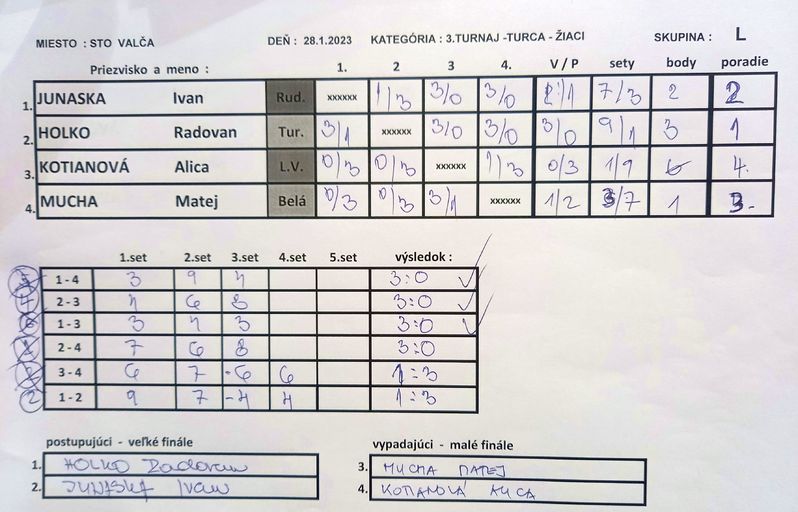 MIESTO : STO VALČA DEŇ : 28.1.2023 KATEGÓRIA : 3.TURNAJ -TURCA - ŽIACI SKUPINA : L
Priezvisko a meno : 1. 2 3 4. V / P sety body poradie
1. JUNASKA Ivan Rud. xxxxxx 1/3 3/0 3/0 2/1 7/3 2 2
2. HOLKO Radovan Tur. 3/1 xxxxxx 3/0 3/0 3/0 9/1 3 1
3. KOTIANOVÁ Alica L.V. 0/3 0/3 xxxxxx 1/3 0/3 1/9 0 4.
4. MUCHA Matej Belá 0/3 0/3 3/1 xxxxxx 1/2 3/7 1 3.
1.set 2.set 3.set 4.set 5.set výsledok :
1 - 4 3 9 4 3:0
2 - 3 4 6 8 3:0
1 - 3 3 4 3 3:0
2 - 4 7 6 8 3:0
3 - 4 6 7 -6 6 1:3
2 1 - 2 9 7 -4 4 1:3
postupujúci - veľké finále
1. HOLKO Radovan
2. JUNASKA Ivan
vypadajúci - malé finále
3. MUCHA MATEJ
4. KOTIANOVÁ ALICA